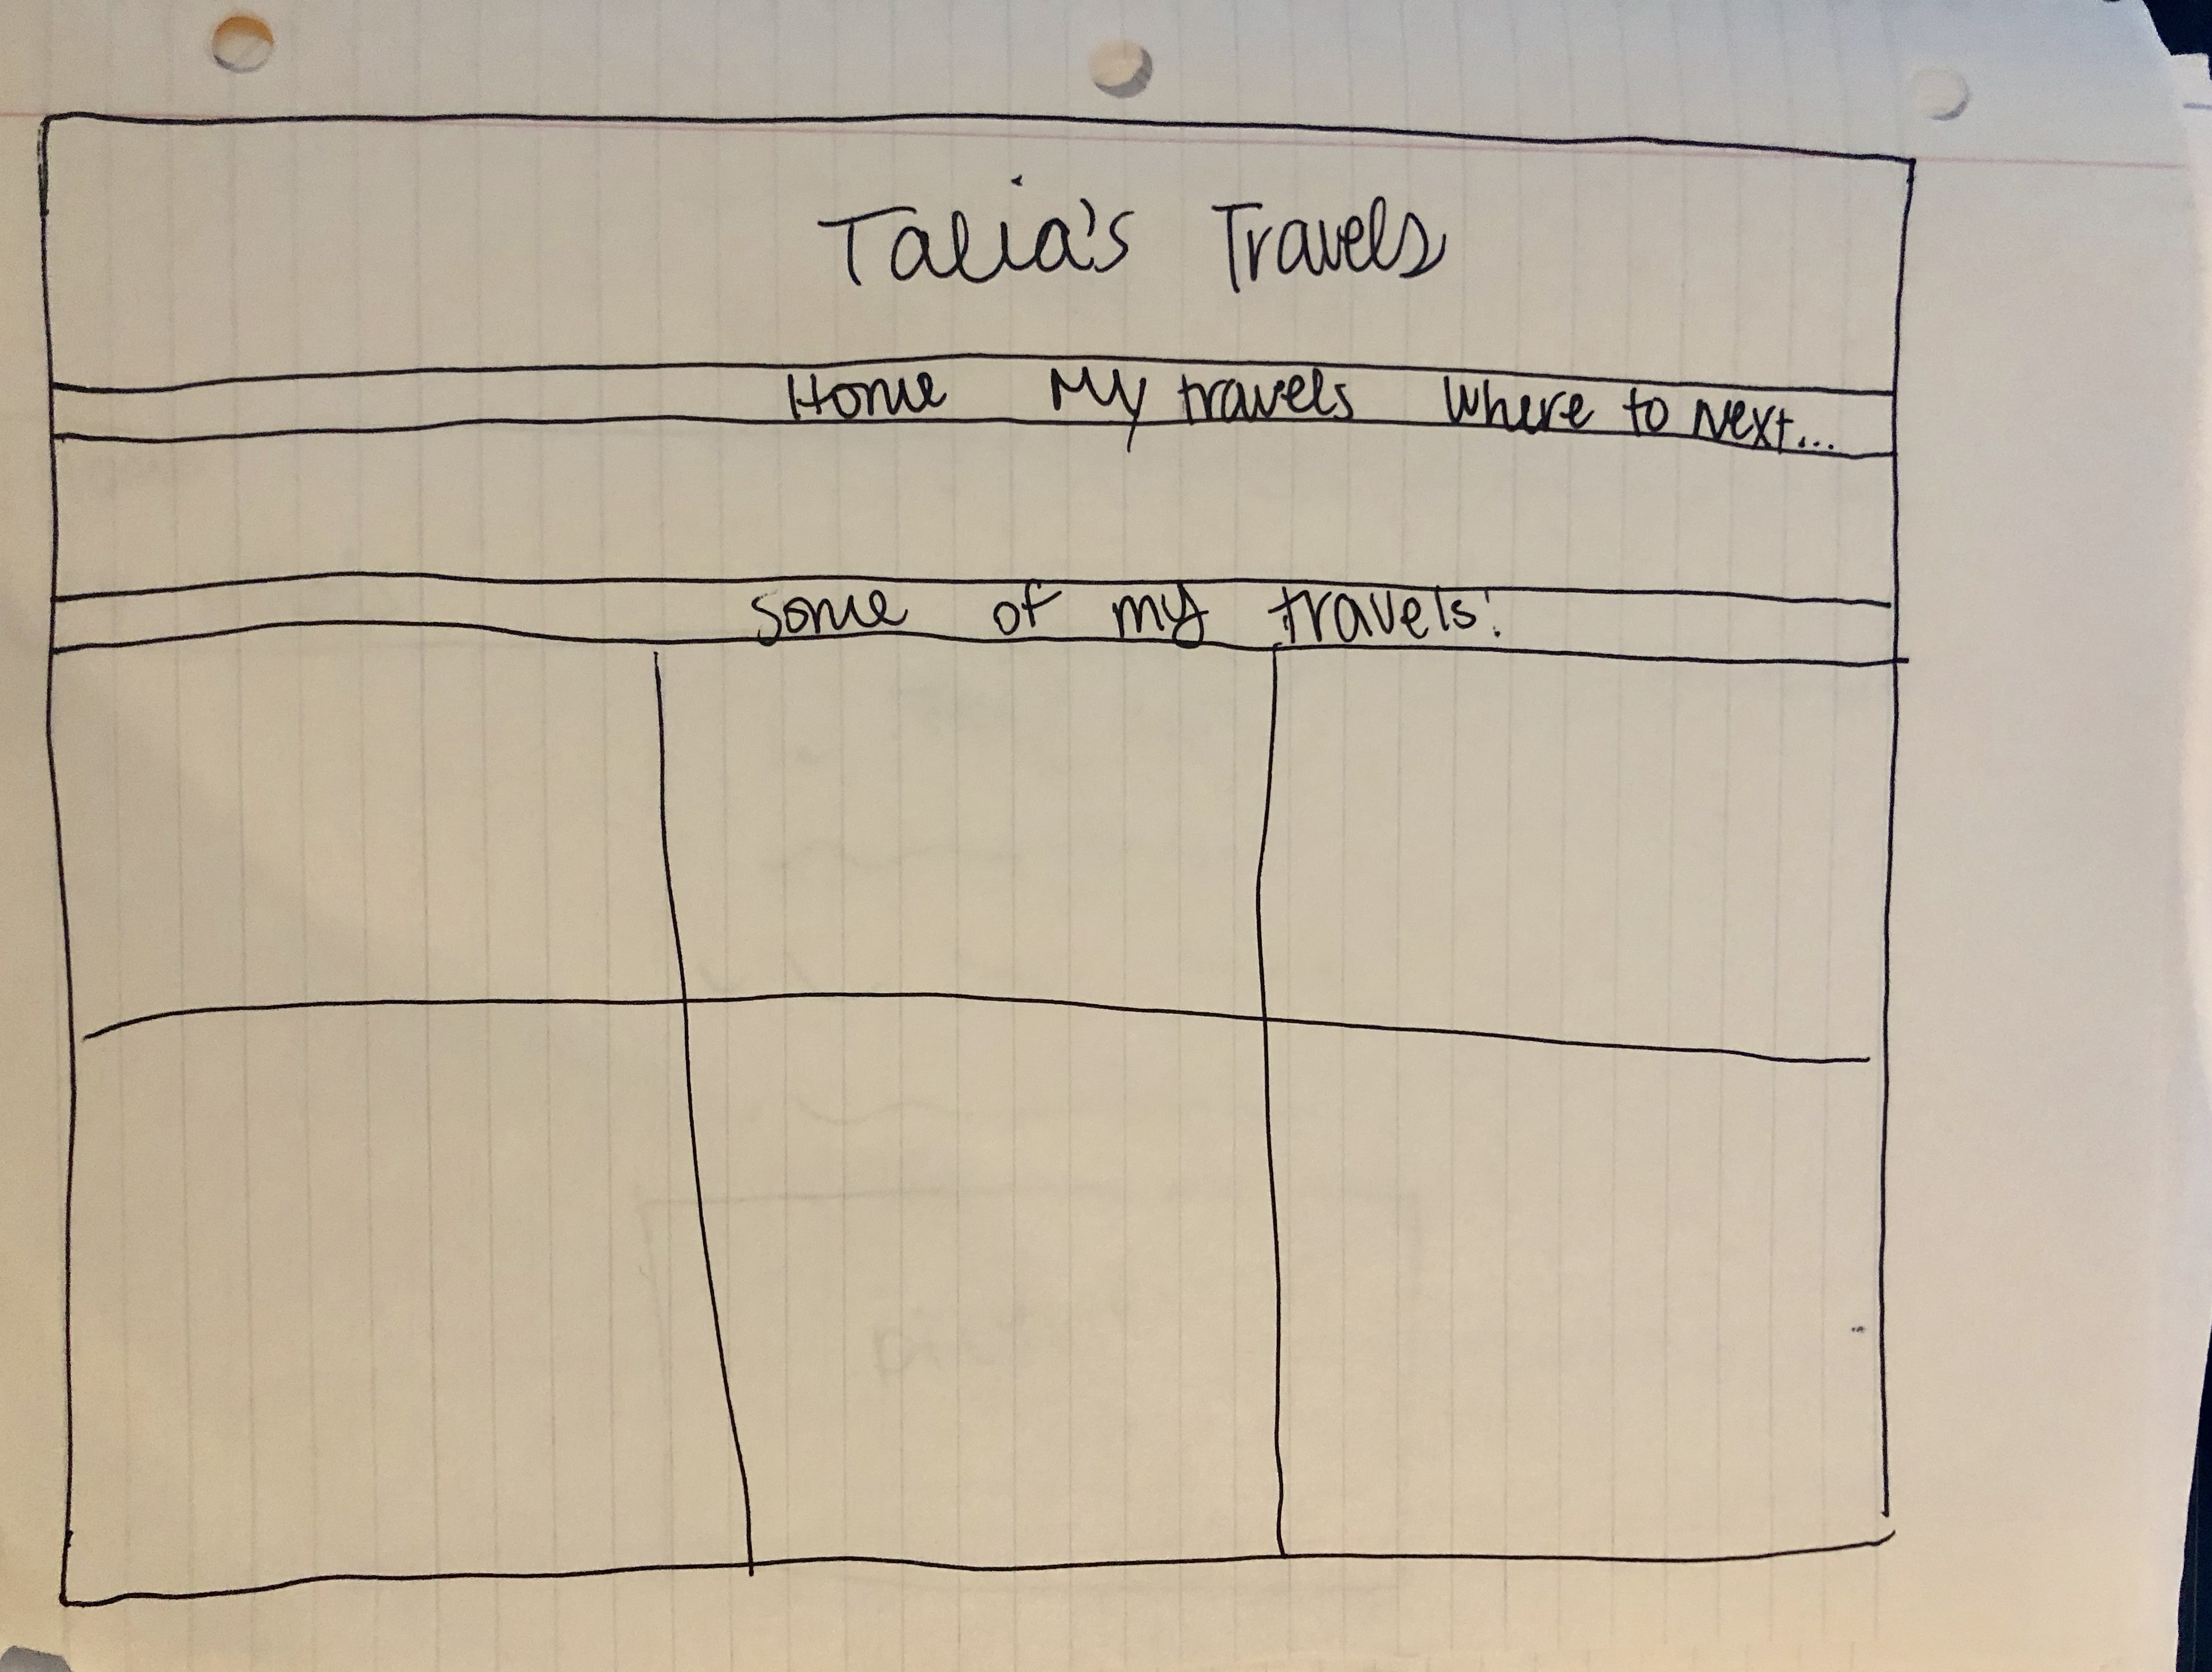 Talia's Travels
Home My travels Where to Next...
some of my travels: